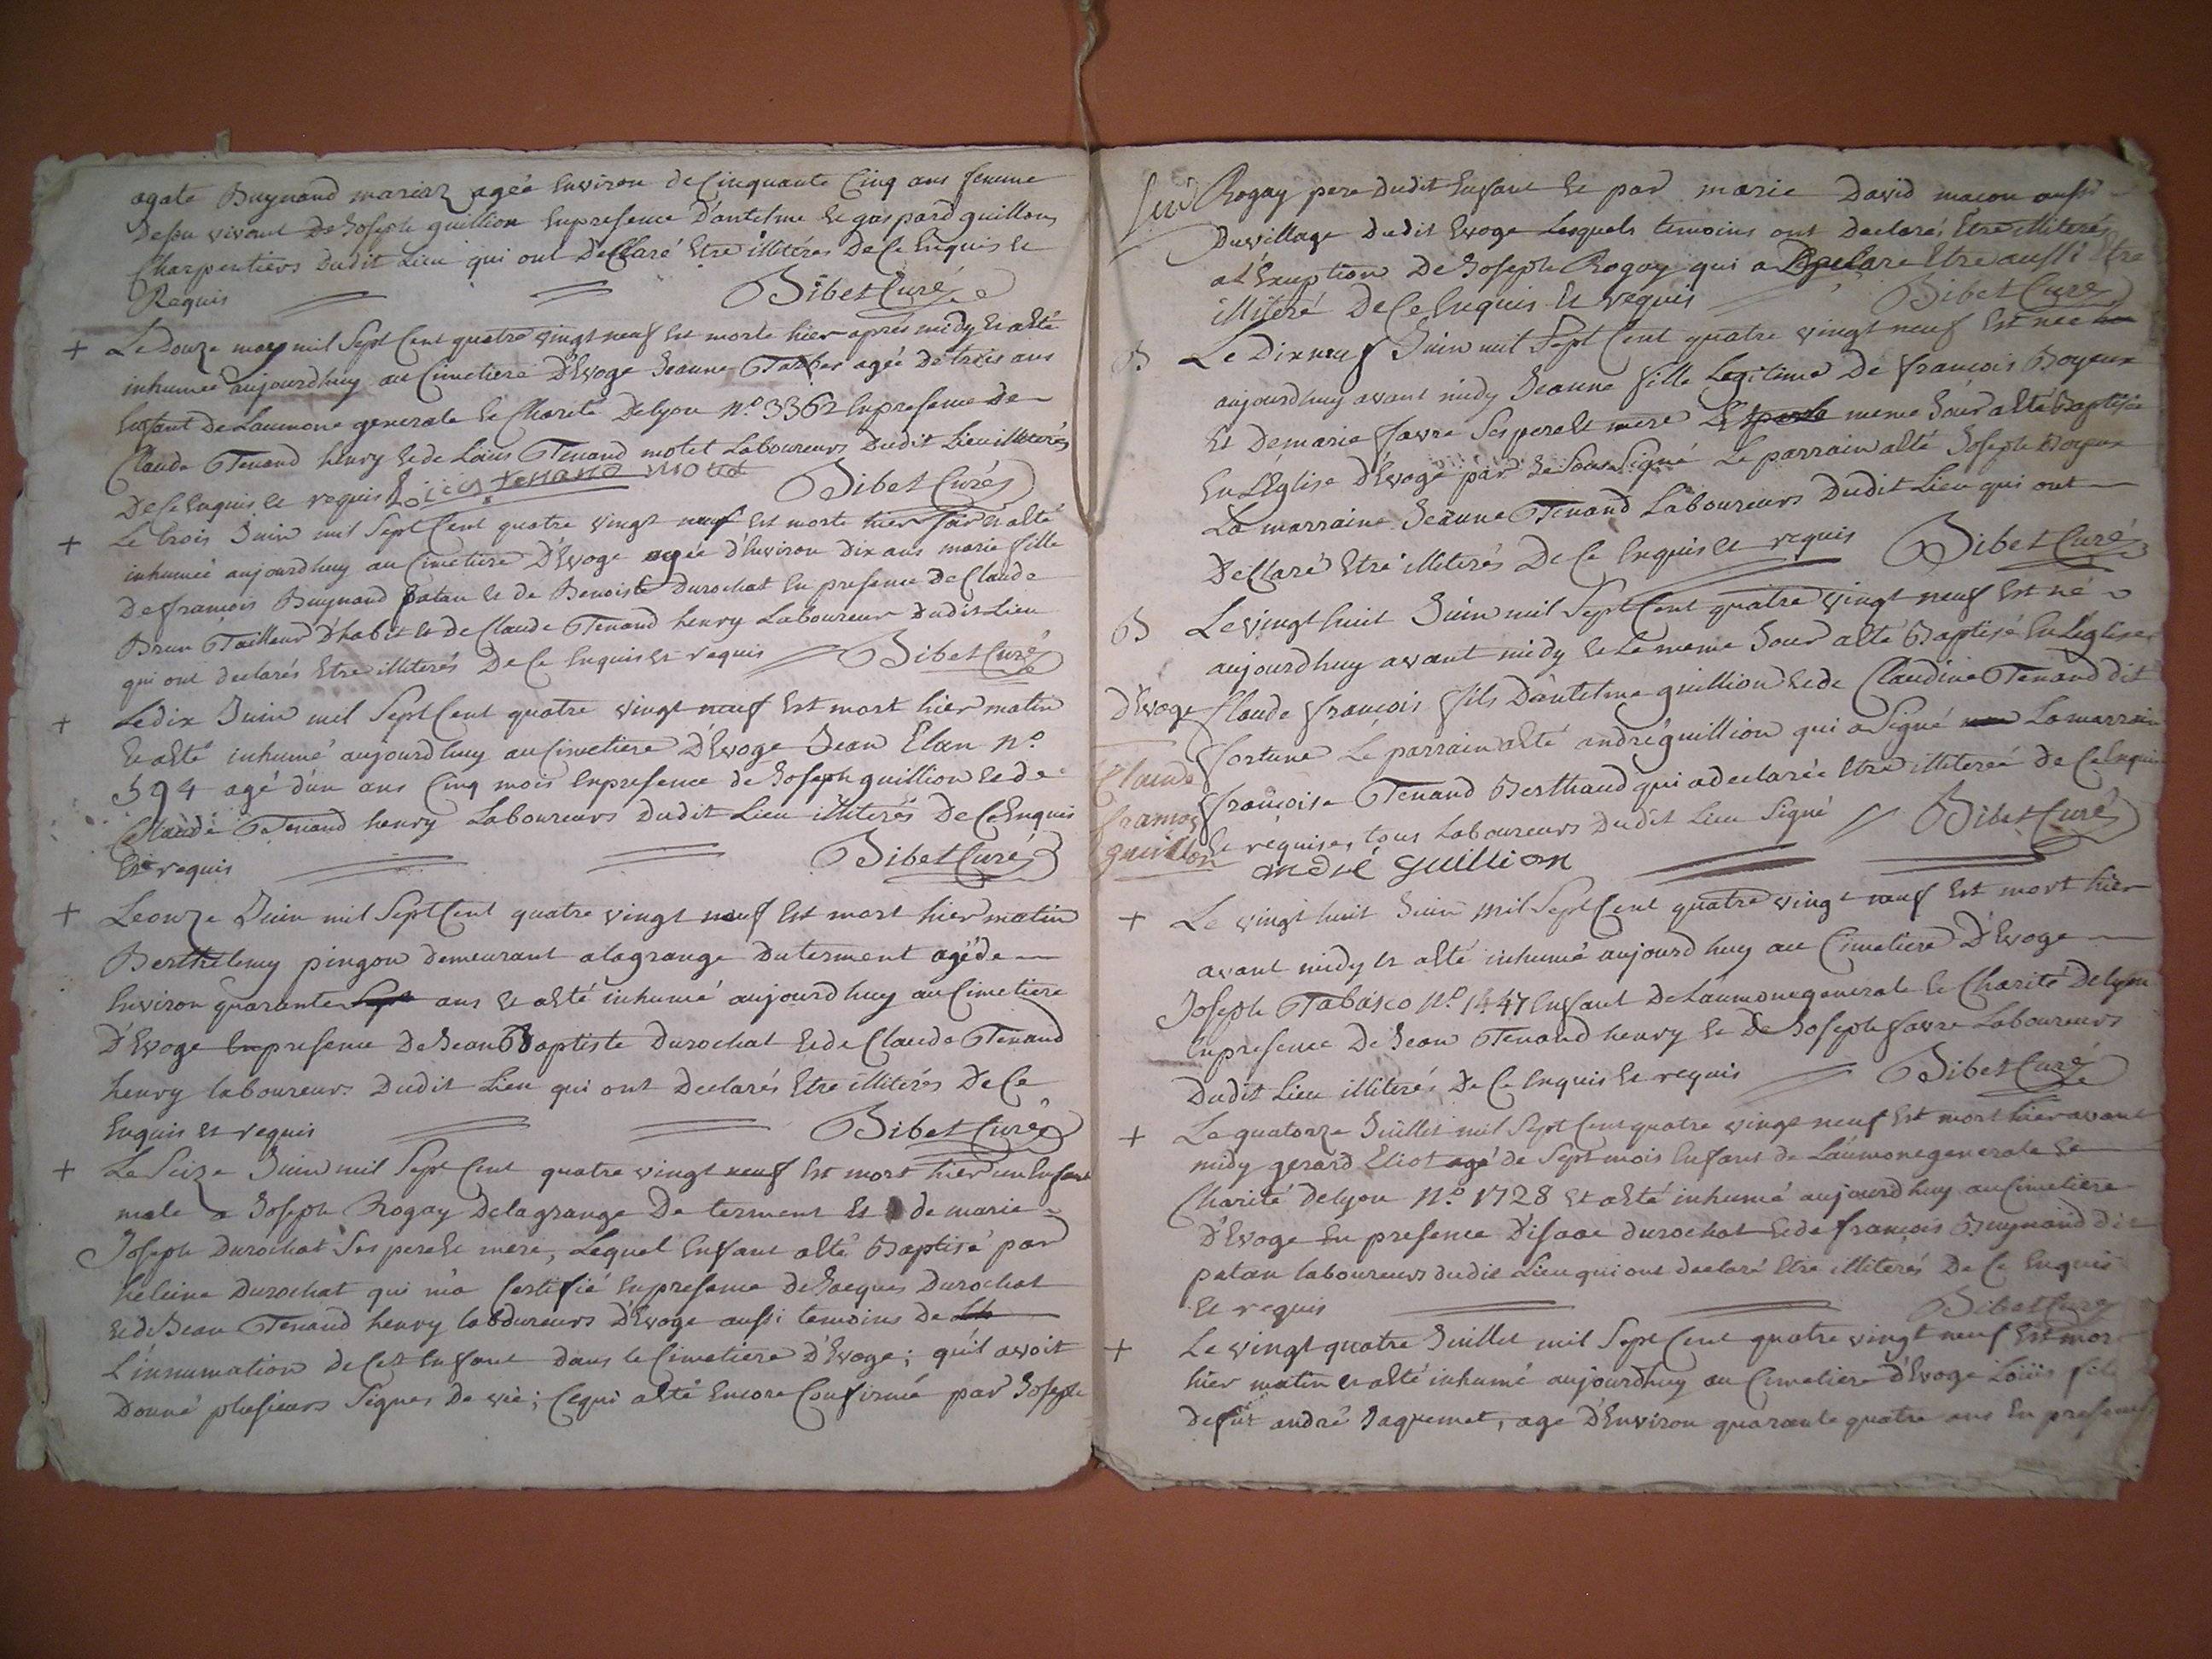 agate Buynand mariaz agée Environ de Cinquante Cinq ans femme
Deson vivant De Joseph guillion Enpresence D'antelme Et gaspard guillon
Charpentiers Dudit Lieu qui ont DeClaré Etre illitérés De Ce Enquis Et
Requis Bibet Curé
+ Le Douze may mil Sept Cent quatre vingt neuf Est morte hier après midy Et asté
inhumée aujourdhuy au Cimetiere D'Evoge Jeanne agée De trois ans
Enfant De Laumone generale Et Charité Delyon N.º 3362 Enpresence De
Claude Tenand henry Et de Loüis Tenand motet Laboureurs Dudit Lieu illiterés
De Ce Enquis Et requis Loüis tenand motet Bibet Curé
+ Le trois Juin mil Sept Cent quatre vingt neuf Est morte hier soir Et asté
inhumée aujourdhuy au Cimetiere D'Evoge agée d'Environ Dix ans marie fille
De françois Buynand patan Et de Benoiste Durochat En presence De Claude
Brun Tailleur D'habit Et De Claude Tenand henry Laboureur Dudit Lieu
qui ont declarés Etre illiterés De Ce Enquis Et requis Bibet Curé
+ Le dix Juin mil Sept Cent quatre vingt neuf Est mort hier matin
Et asté inhumé aujourdhuy au Cimetiere D'Evoge Jean Elan N.º
594 agé d'un ans Cinq mois Enpresence de Joseph guillion Et de
Claude Tenand henry Laboureurs Dudit Lieu illiterés De Ce Enquis
Et requis Bibet Curé
+ Le onze Juin mil Sept Cent quatre vingt neuf Est mort hier matin
Berthelemy pingon demeurant alagrange Duterment agé de
Environ quarante Sept ans Et asté inhumé aujourdhuy au Cimetiere
D'Evoge En presence De Jean Baptiste Durochat Et de Claude Tenand
henry laboureurs Dudit Lieu qui ont Declarés Etre illiterés De Ce
Enquis Et requis Bibet Curé
+ Le Seize Juin mil Sept Cent quatre vingt neuf Est mort hier un Enfant
male a Joseph Rogay Delagrange De terment Et de marie
Joseph Durochat Ses pere Et mere, Lequel Enfant asté Baptisé par
heleine Durochat qui m'a Certifié Enpresence De Jacques Durochat
Et de Jean Tenand henry laboureurs D'Evoge aussi temoins de
L'innumation de Cet Enfant Dans le Cimetiere D'Evoge; qu'il avoit
Donné plusieurs Signes De vie; Cequi asté Encore Confirmé par Joseph
Rogay pere Dudit Enfant Et par marie David macon aussi
Duvillage Dudit Evoge Lesquels temoins ont Declarés Etre illiterés
a L'Exuption De Joseph Rogay qui a Declare Etre aussi Etre
illiteré De Ce Enquis Et requis Bibet Curé
B Le Dixneuf Juin mil Sept Cent quatre vingt neuf Est née
aujourdhuy avant midy Jeanne fille Legitime De françois Boyeux
Et Demarie favre Ses pere Et mere Et meme Jour asté Baptisée
En L'Eglise D'Evoge par Le SousSigné Le parrain asté Joseph Boyeux
La marraine Jeanne Tenand Laboureurs Dudit Lieu qui ont
DeClaré Etre illiterés De Ce Enquis Et requis Bibet Curé
B Le vingt huit Juin mil Sept Cent quatre vingt neuf Est né
aujourdhuy avant midy Et Le meme Jour asté Baptisé En Léglise
D'Evoge Claude françois fils D'antelme guillion Et de Claudine Tenand dit
fortune Le parrain asté andré guillion qui a Signé La marraine
Claude
françoise Tenand Berthaud qui a declarée Etre illiterée De Ce Enquis
françois
Et requises, tous Laboureurs Dudit Lieu Signé Bibet Curé
guillon
andré guillion
+ Le vingt huit Juin mil Sept Cent quatre vingt neuf Est mort hier
avant midy et asté inhumé aujourdhuy au Cimetiere D'Evoge
Joseph Tabasco N.º 1447 Enfant De Laumone generale Et Charité Delyon
Enpresence De Jean Tenand henry Et De Joseph favre Laboureurs
Dudit Lieu illiterés De Ce Enquis Et requis Bibet Curé
+ Le quatorze Juillet mil Sept Cent quatre vingt neuf Est mort hier avant
midy gerard Eliot agé de Sept mois Enfant de Laumone generale Et
Charité Delyon N.º 1728 Et asté inhumé aujourdhuy au Cimetiere
D'Evoge En presence D'isaac durochat Et de françois Buynand dit
patan laboureurs dudit Lieu qui ont declaré Etre illiterés De Ce Enquis
Et requis Bibet Curé
+ Le vingt quatre Juillet mil Sept Cent quatre vingt neuf Est mor
hier matin et asté inhumé aujourdhuy au Cimetiere D'Evoge Loüis fils
Defut andré Jaquemet, age D'Environ quarante quatre ans En presence